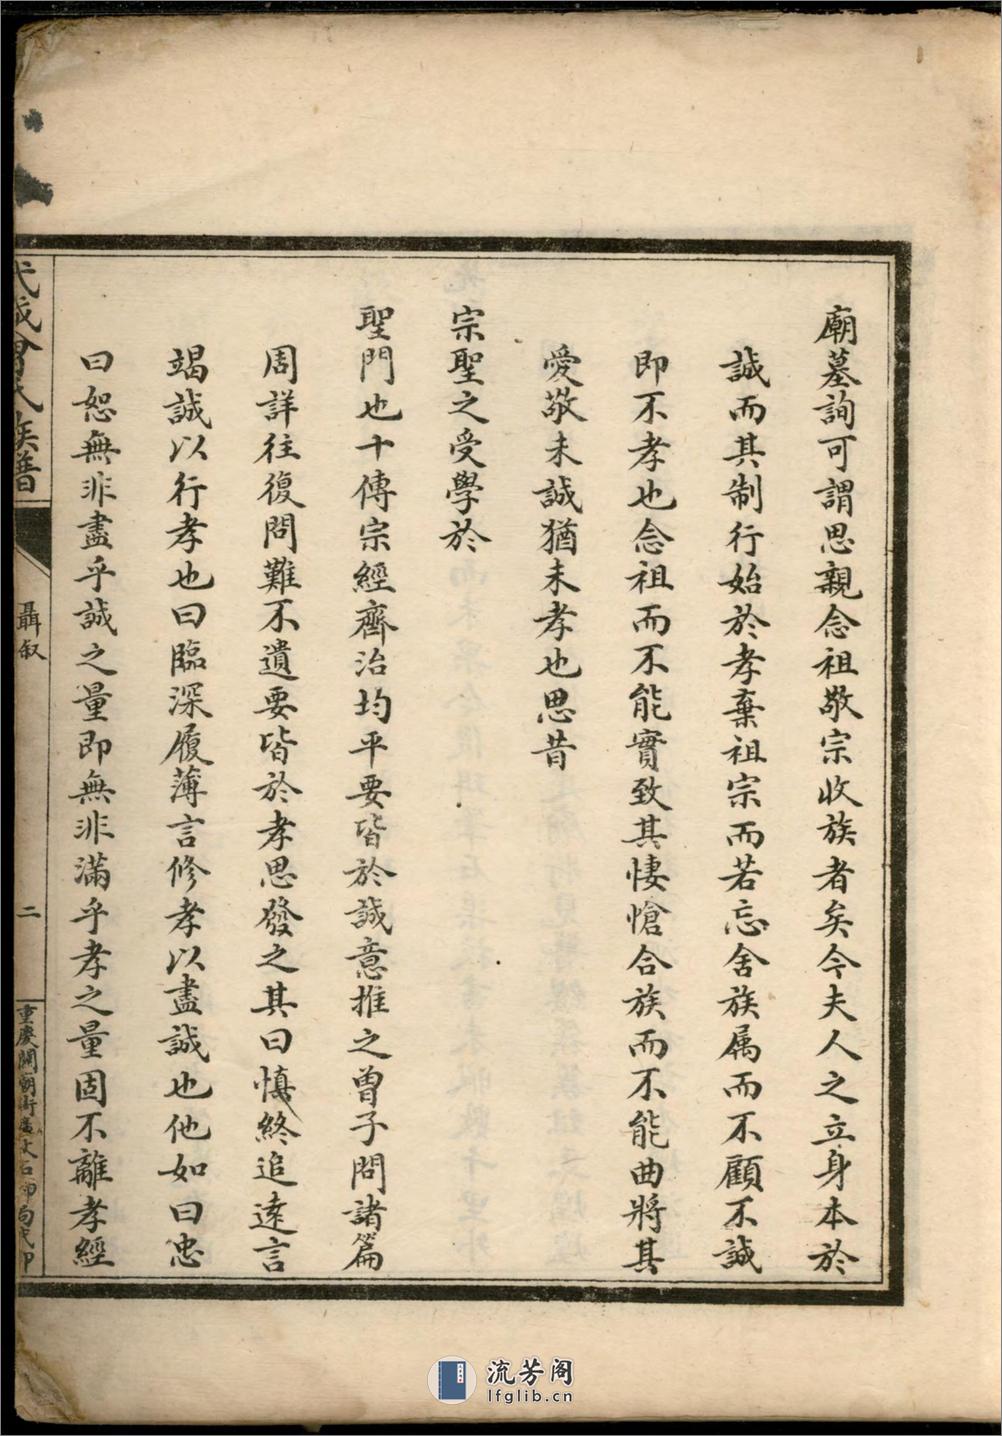 廟墓詢可謂思親念祖敬宗收族者矣今夫人之立身本於
誠而其制行始於孝棄祖宗而若忘舍族属而不顧不誠
即不孝也念祖而不能實致其悽愴合族而不能曲將其
愛敬未誠猶未孝也思昔
宗聖之受學於
聖門也十傳宗經齊治均平要皆於誠意推之曾子問諸篇
周詳往復問難不遺要皆於孝思發之其曰慎終追遠言
竭誠以行孝也曰臨深履薄言修孝以盡誠也他如曰忠
曰恕無非盡乎誠之量即無非滿乎孝之量固不離孝經
氏族譜
聶叙
二
重慶關廟街
石印局代印
流芳阁
lfglib.cn